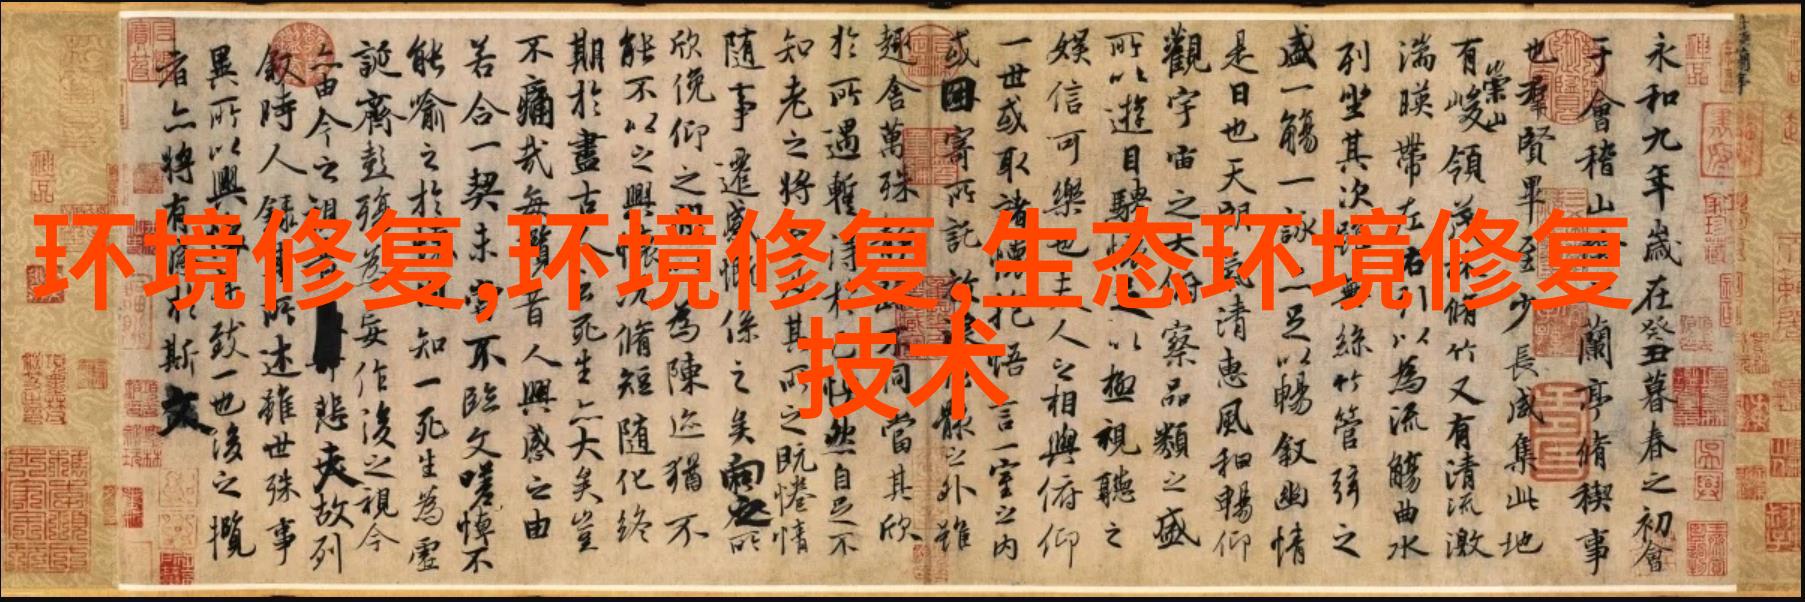 环境修复,环境修复,生态环境修复
技术
永和九年歲在癸丑暮春之初會
于會稽山陰之蘭亭脩稧事
也羣賢畢至少長咸集此地
有崇山峻領茂林脩竹又有清流激
湍暎帶左右引以為流觴曲水
列坐其次雖無絲竹管弦之
盛一觴一詠亦足以暢叙幽情
是日也天朗氣清惠風和暢仰
觀宇宙之大俯察品類之盛
所以遊目騁懷足以極視聽之
娛信可樂也夫人之相與俯仰
一世或取諸懷抱悟言一室之內
或因寄所託放浪形骸之外雖
趣舍萬殊靜躁不同當其欣
於所遇蹔得於己怏然自足不
知老之將至及其所之既惓情
隨事遷感慨係之矣向之所
欣俛仰之閒以為陳迹猶不
能不以之興懷況脩短隨化終
期於盡古人云死生亦大矣豈
不痛哉每覽昔人興感之由
若合一契未嘗不臨文嗟悼不
能喻之於懷固知一死生為虛
誕齊彭殤為妄作後之視今
亦由今之視昔悲夫故列
敘時人錄其所述雖世殊事
異所以興懷其致一也後之攬
者亦將有感於斯文